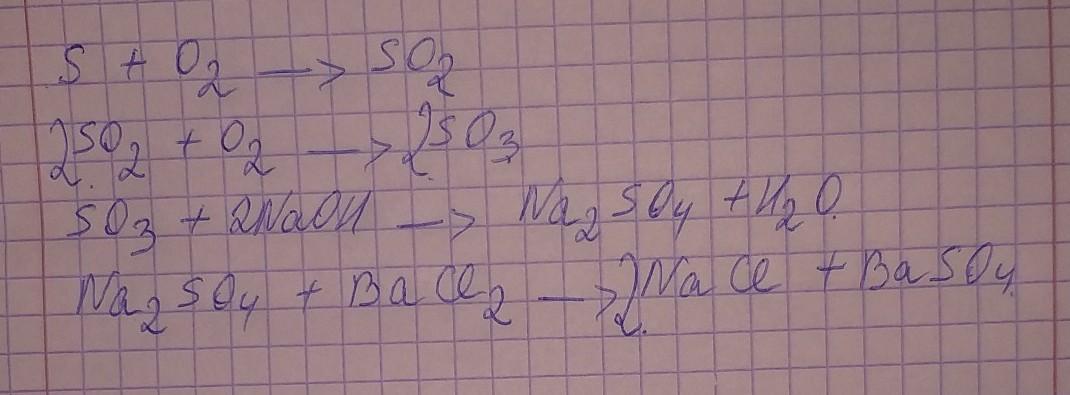 S + O₂ —> SO₂
2SO₂ + O₂ —> 2SO₃
SO₃ + 2NaOH —> Na₂SO₄ + H₂O.
Na₂SO₄ + BaCl₂ —> 2NaCl + BaSO₄.